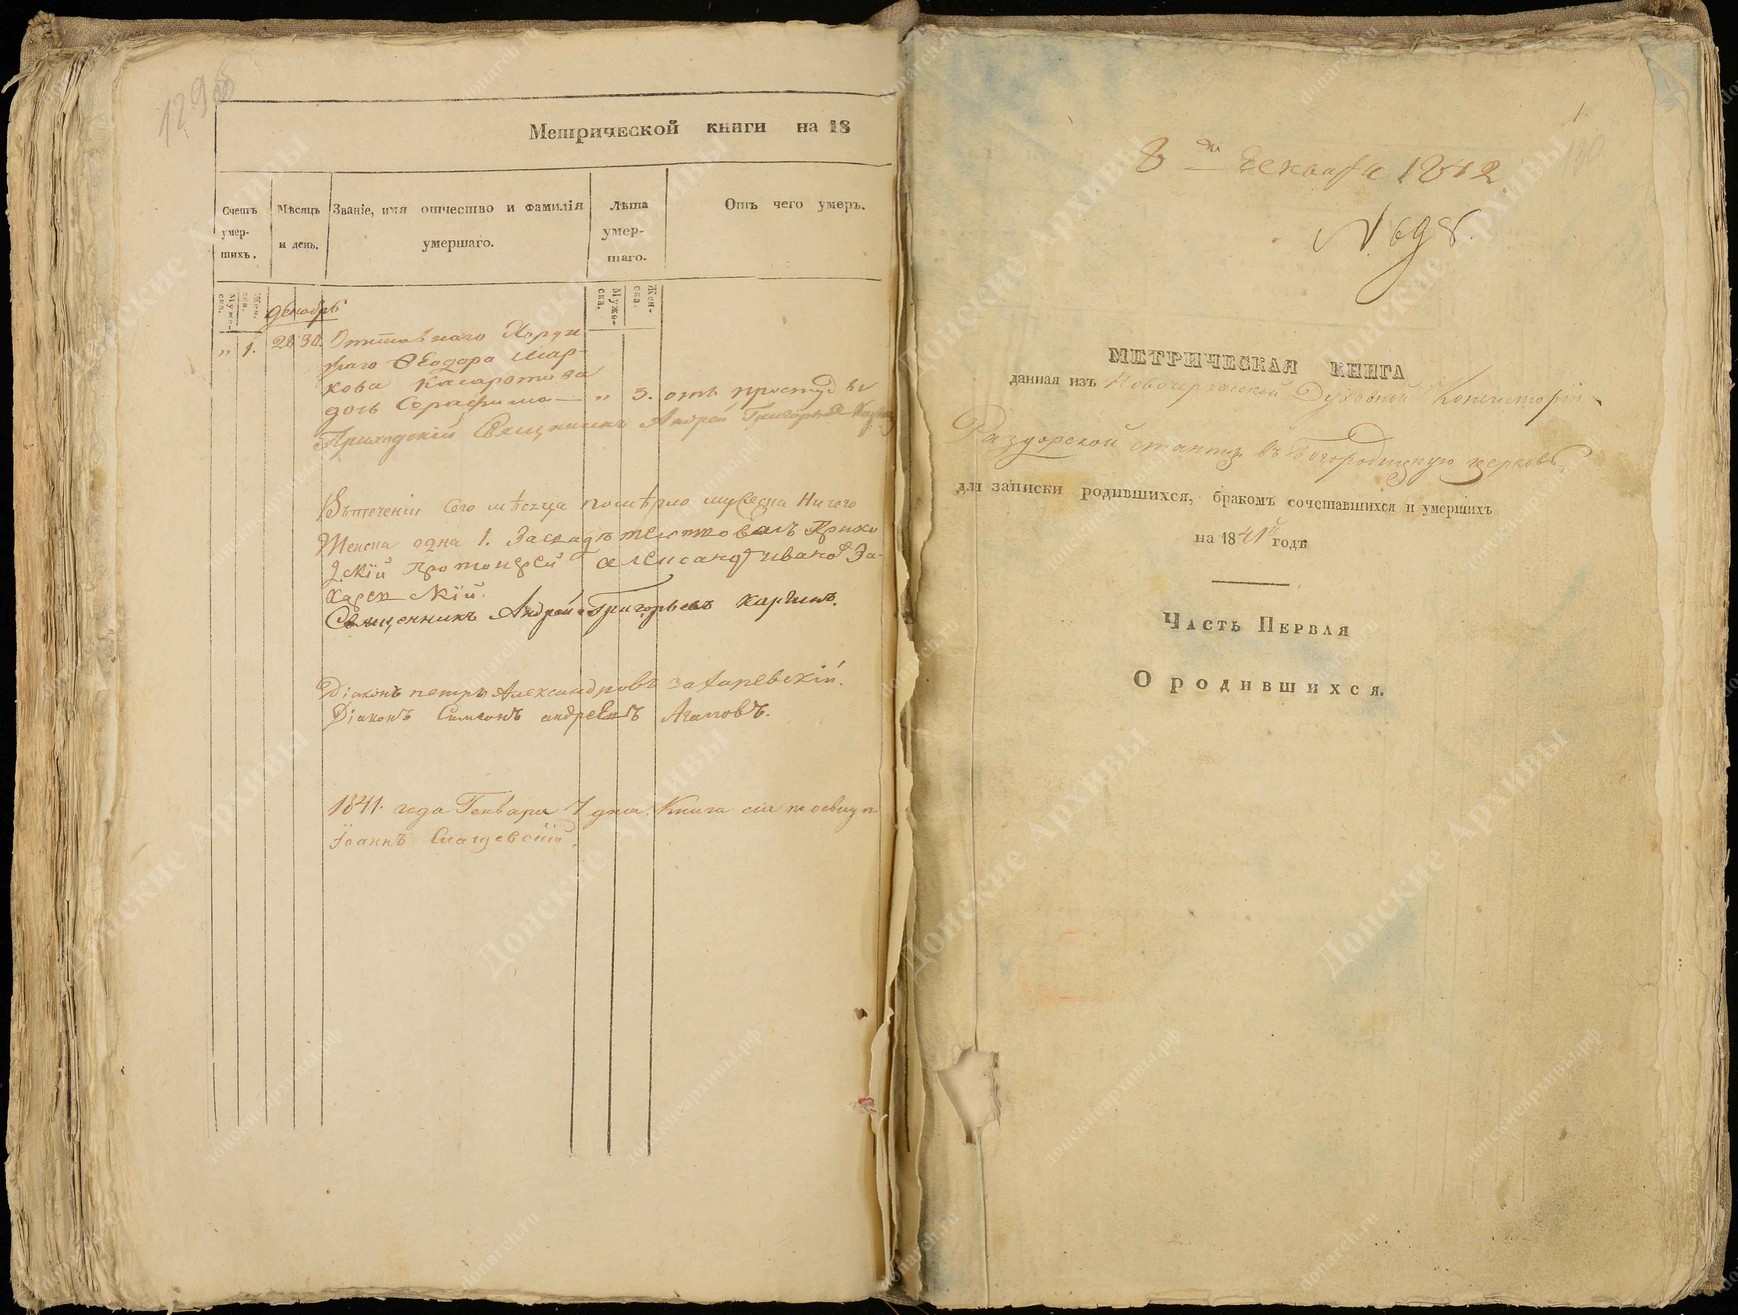 129
Метрической книги на 18
Счетъ умер-шихъ.
Мѣсяцъ и день.
Званіе, имя отчество и фамилія умершаго.
Лѣта умер-шаго.
Отъ чего умеръ.
Муже-ска.
Жен-ска.
Муже-ска.
Жен-ска.
декабрь
" 1. 28 30. Отставнаго Хорун
жаго Ѳеодора Мар-
кова
дочь Серафима — " 3. отъ простуды
Приходскій Священникъ Андрей Григорьевъ
Втеченіи сего мѣсяца померло мужеска Ничего
Женска одна 1. Засвидѣтелствовалъ Прихо
дскій Протоіерей Александръ Ивановъ За-
харевскій.
Священникъ Андрей Григорьевъ Карчинъ.
Діаконъ петръ Александровъ захаревскій.
Діаконъ Симеонъ андреевъ Агаповъ.
1841. года Генваря 7 дня. Книга сія
Іоаннъ
1.
8 декабря 1842
№ 698.
МЕТРИЧЕСКАЯ КНИГА
данная изъ Новочеркасской Духовной Консисторіи
Раздорской станицы въ Богородицкую церковь
для записки родившихся, бракомъ сочетавшихся и умершихъ
на 1841й годъ
Часть Первая
О родившихся.
Донские Архивы
donarch.ru
донскиеархивы.рф